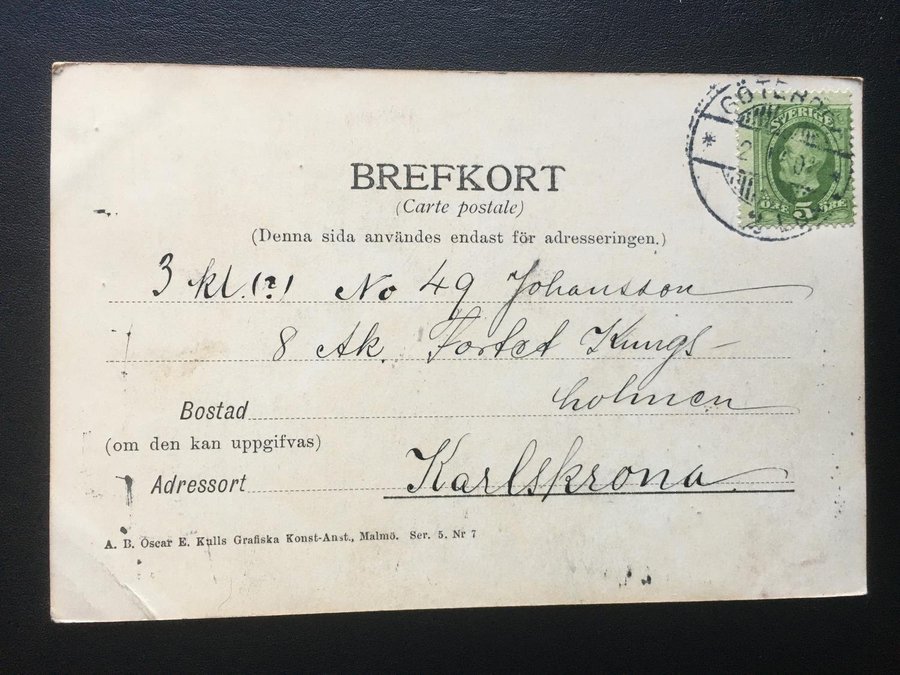 GÖTEBORG
SVERIGE
5
BREFKORT
(Carte postale)
(Denna sida användes endast för adresseringen.)
3 kl. (2) No 49 Johansson
8 Ak. Fortet Kungs-
holmen
Bostad
(om den kan uppgifvas)
Karlskrona
Adressort
A. B. Oscar E. Kulls Grafiska Konst-Anst., Malmö. Ser. 5. Nr 7